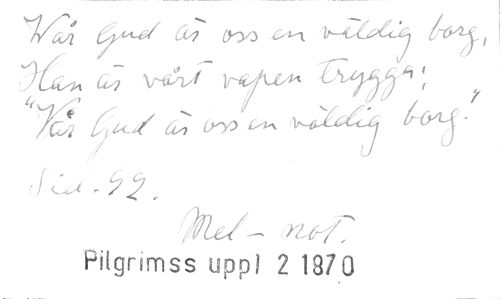 Wår Gud är oss en väldig borg,
Han är vårt vapen trygga;
"Vår Gud är oss en väldig borg."
Sid. 92.
Mel - not.
Pilgrimss uppl 2 1870